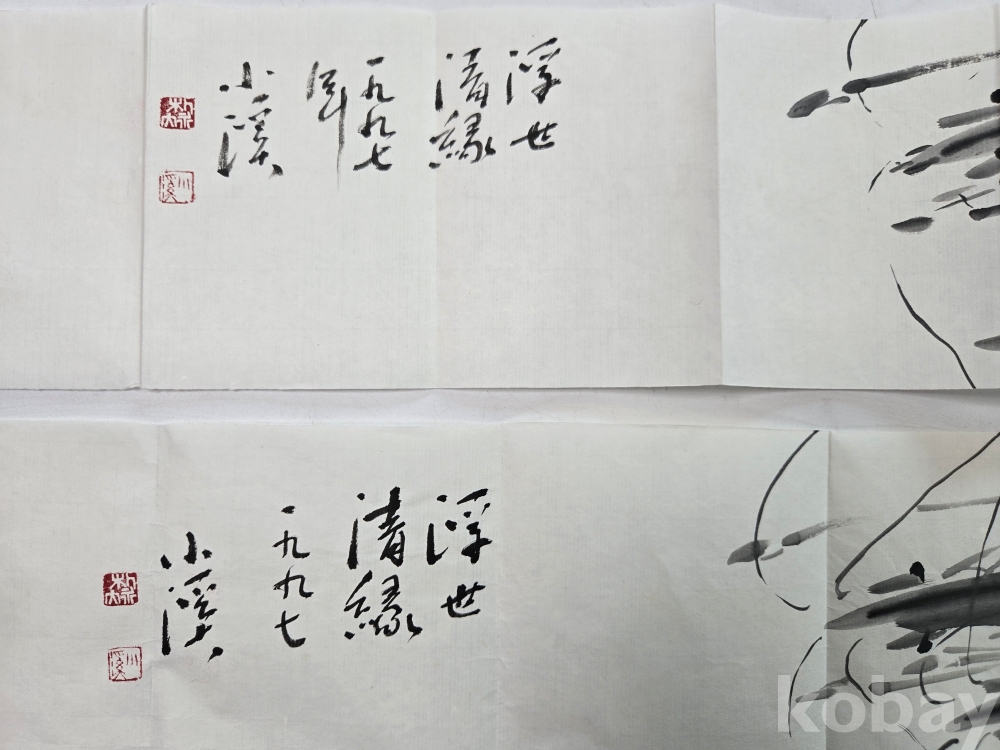 浮世
清緣
一九九七
年
小溪
浮世
清緣
一九九七
小溪
kobay